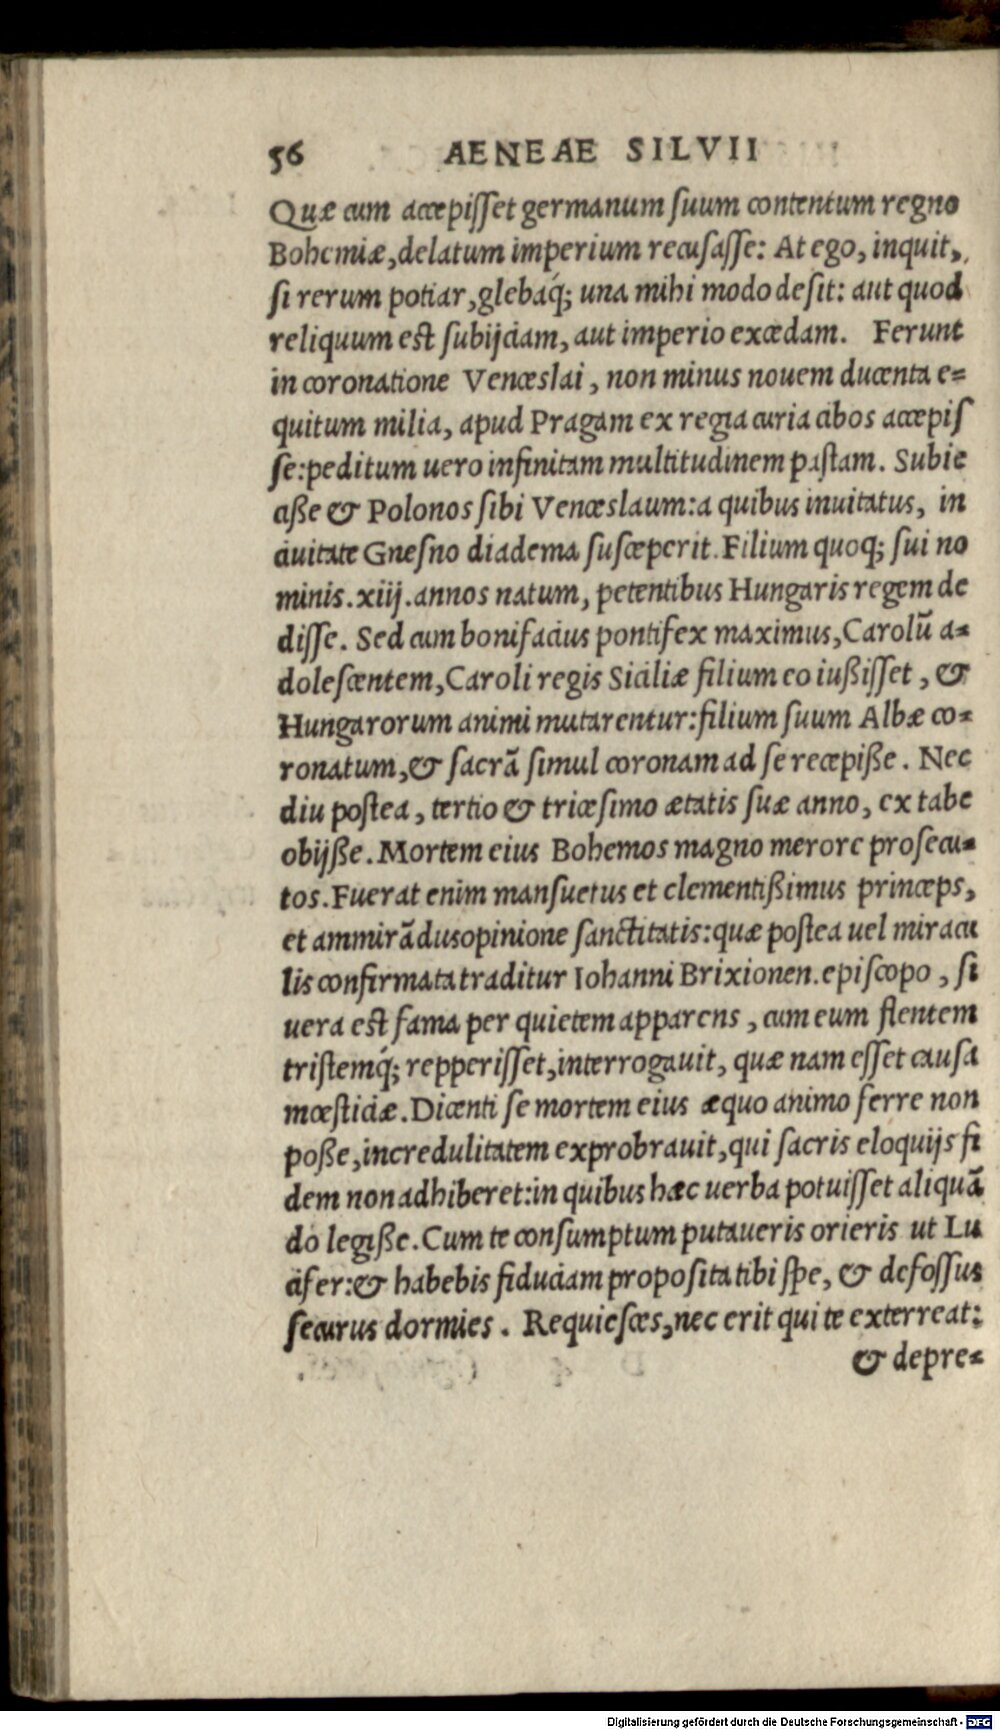 56 AENEAE SILVII
Quæ cum accepiſſet germanum ſuum contentum regno
Bohemiæ, delatum imperium recuſaſſe: At ego, inquit,
ſi rerum potiar, glebaq́; una mihi modo deſit: aut quod
reliquum est ſubijciam, aut imperio excedam. Ferunt
in coronatione Venceslai, non minus nouem ducenta e=
quitum milia, apud Pragam ex regia curia cibos accepiſ
ſe: peditum uero infinitam multitudinem paſtam. Subie
ciße & Polonos ſibi Venceslaum: a quibus inuitatus, in
ciuitate Gneſno diadema ſuſceperit. Filium quoq; ſui no
minis .xiij. annos natum, petentibus Hungaris regem de
diſſe. Sed cum bonifacius pontifex maximus, Carolũ a=
doleſcentem, Caroli regis Siciliæ filium eo iußiſſet, &
Hungarorum animi mutarentur: filium ſuum Albæ co=
ronatum, & ſacrã ſimul coronam ad ſe recepiße. Nec
diu poſtea, tertio & triceſimo ætatis ſuæ anno, ex tabe
obijße. Mortem eius Bohemos magno merore proſecu=
tos. Fuerat enim manſuetus et clementißimus princeps,
et ammirãdus opinione ſanctitatis: quæ poſtea uel miracu
lis confirmata traditur Iohanni Brixionen. epiſcopo, ſi
uera est fama per quietem apparens, cum eum flentem
triſtemq́; repperiſſet, interrogauit, quæ nam eſſet cauſa
mœſticiæ. Dicenti ſe mortem eius æquo animo ferre non
poße, incredulitatem exprobrauit, qui ſacris eloquijs fi
dem non adhiberet: in quibus hæc uerba potuiſſet aliquã
do legiße. Cum te conſumptum putaueris orieris ut Lu
cifer: & habebis fiduciam propoſita tibi ſpe, & defoſſus
ſecurus dormies. Requieſces, nec erit qui te exterreat:
& depre=
Digitalisierung gefördert durch die Deutsche Forschungsgemeinschaft - DFG